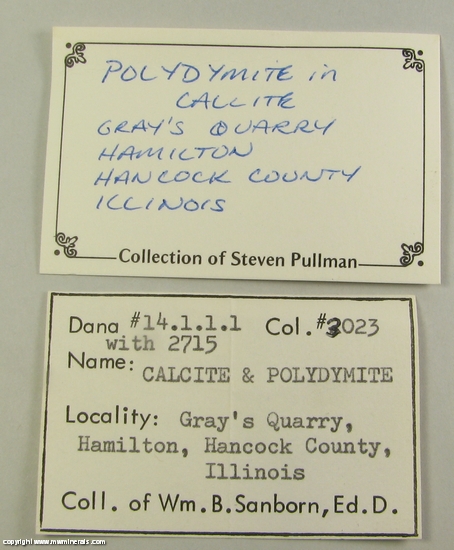 POLYDYMITE in
CALLITE
GRAY'S QUARRY
HAMILTON
HANCOCK COUNTY
ILLINOIS
Collection of Steven Pullman
Dana #14.1.1.1 Col. #3023
with 2715
Name: CALCITE & POLYDYMITE
Locality: Gray's Quarry,
Hamilton, Hancock County,
Illinois
Coll. of Wm.B.Sanborn,Ed.D.
copyright www.mwminerals.com